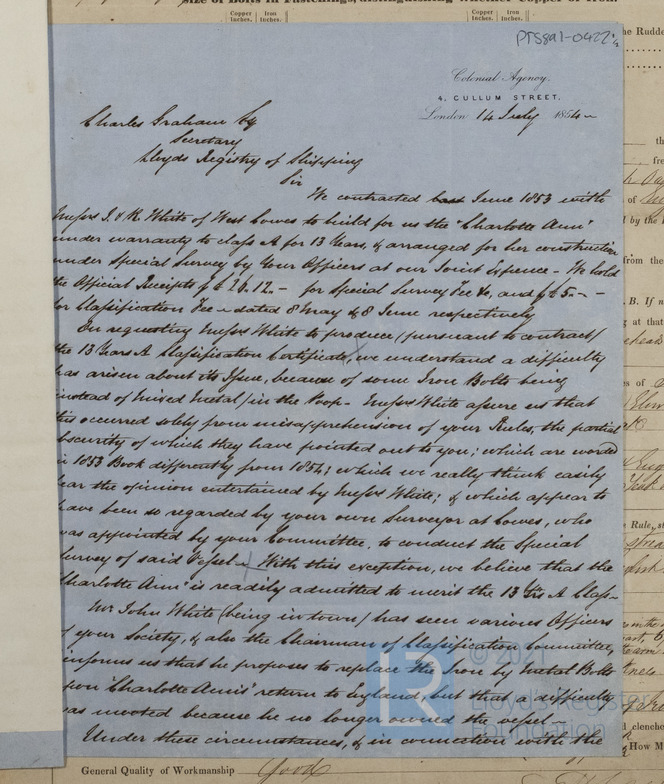 Size of Bolts in Fastenings, distinguishing whether Copper or Iron.
Copper Inches. Iron Inches. Copper Inches. Iron Inches.
PTS891-0422
Colonial Agency.
4, CULLUM STREET.
London 14 July 1854
Charles Graham Esq
Secretary
Lloyds Registry of Shipping
Sir
We contracted last June 1853 with
Messrs J. & R. White of West Cowes to build for us the "Charlotte Ann"
under warranty to class A for 13 Years, & arranged for her construction
under Special Survey by Your Officers at our Joint Expence - We hold
the Official Receipts of £26.12.- for Special Survey Fee &c, and of £5.-.-
for Classification Fee - dated 8 May & 8 June respectively
On requesting Messrs White to produce (pursuant to contract)
the 13 Years A Classification Certificate, we understand a difficulty
has arisen about its Issue, because of some Iron Bolts being
instead of Mixed Metal in the Poop - Messrs White assure us that
this occurred solely from misapprehension of your Rules, the partial
obscurity of which they have pointed out to you; which are worded
in 1853 Book differently from 1854; which we really think easily
bear the opinion entertained by Messrs White; & which appear to
have been so regarded by your own Surveyor at Cowes, who
was appointed by your Committee, to conduct the Special
Survey of said Vessel - With this exception, we believe that the
Charlotte Ann" is readily admitted to merit the 13 Yrs A Class -
Mr John White (being in town) has seen various Officers
of your Society, & also the Chairman of Classification Committee,
informs us that he proposes to replace the Iron by Metal Bolts
upon "Charlotte Ann's" return to England, but that a difficulty
was mooted because he no longer owned the vessel -
Under these circumstances, & in connection with the
General Quality of Workmanship Good
© 2021
Lloyd's Register
Foundation